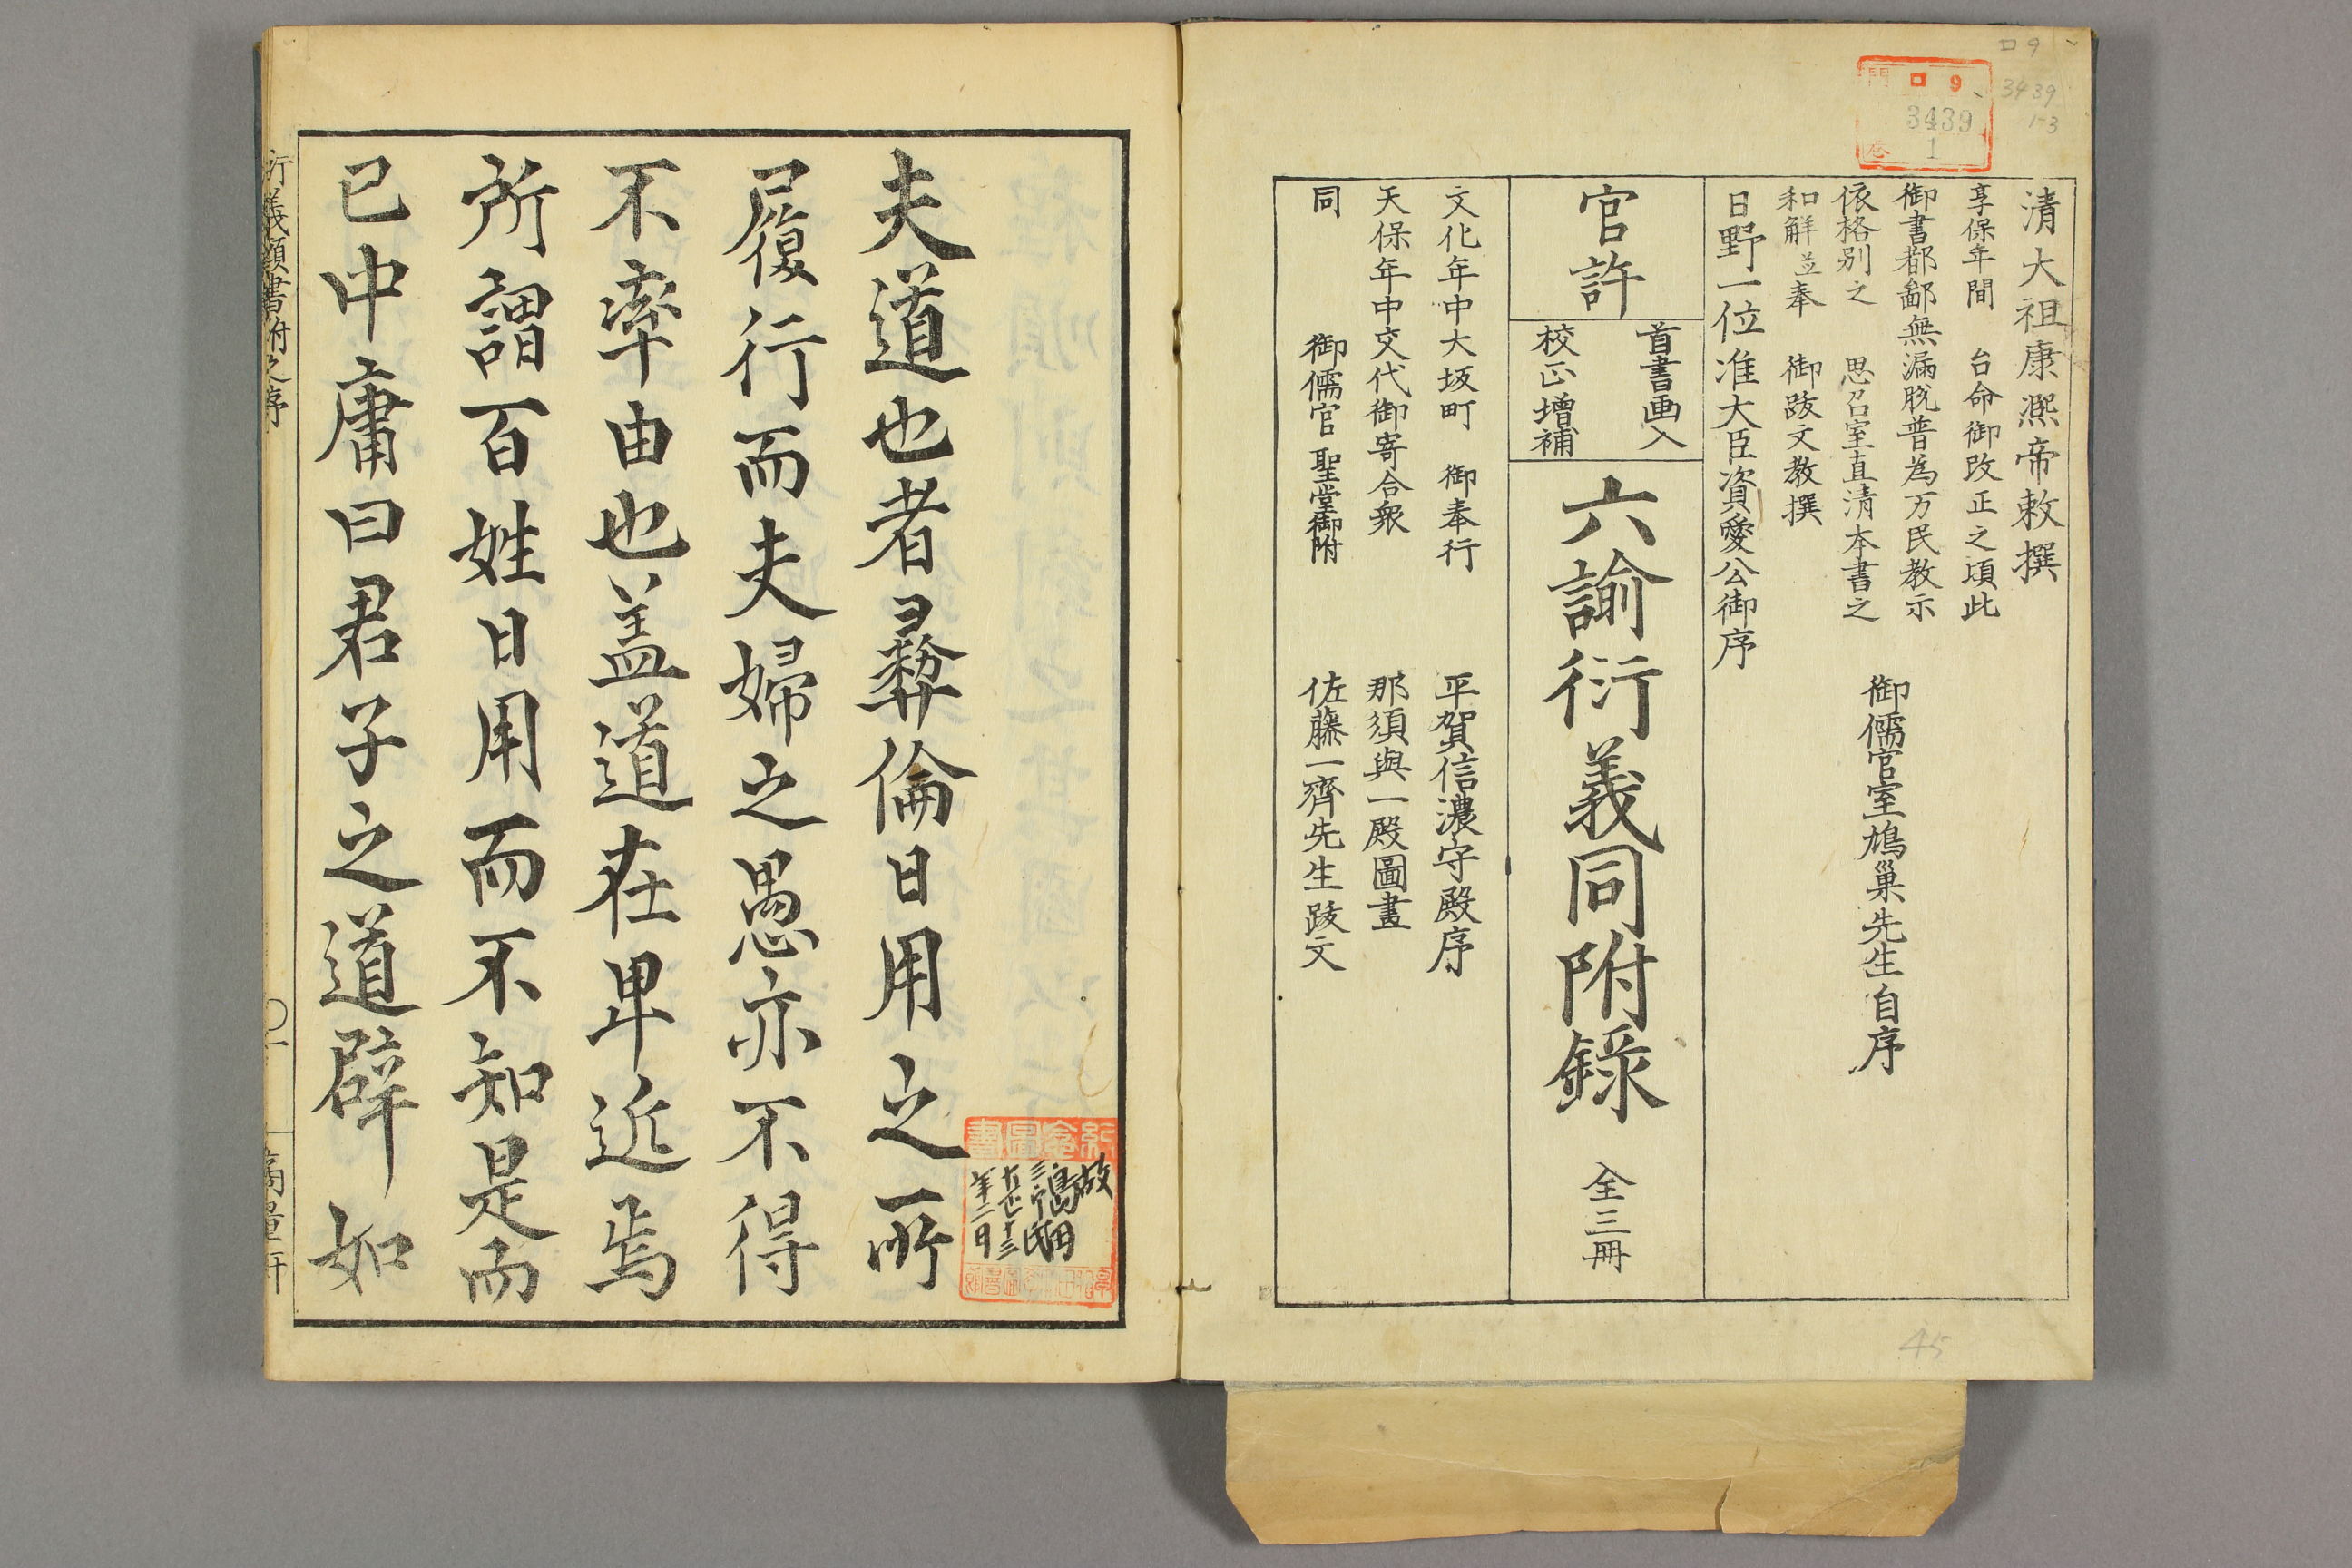 ロ9
3439
1-3
門 ロ 9
3439
1
清大祖康熈帝敕撰
享保年間 台命御改正之頃此
御書都鄙無漏脱普為万民教示
依格別之 思召室直清本書之
和解並奉 御跋文教撰
御儒官室鳩巣先生自序
日野一位准大臣資愛公御序
官許
首書画入
校正増補
六諭衍義同附錄
全三冊
文化年中大坂町 御奉行 平賀信濃守殿序
天保年中交代御寄合衆 那須與一殿圖畫
同 御儒官聖堂御附 佐藤一齊先生跋文
45
夫道也者彛倫日用之所
履行而夫婦之愚亦不得
不率由也盖道在卑近焉
所謂百姓日用而不知是而
已中庸曰君子之道辟如
故
島田
三郎氏
大正十三
年二日
衍義頭書附之序